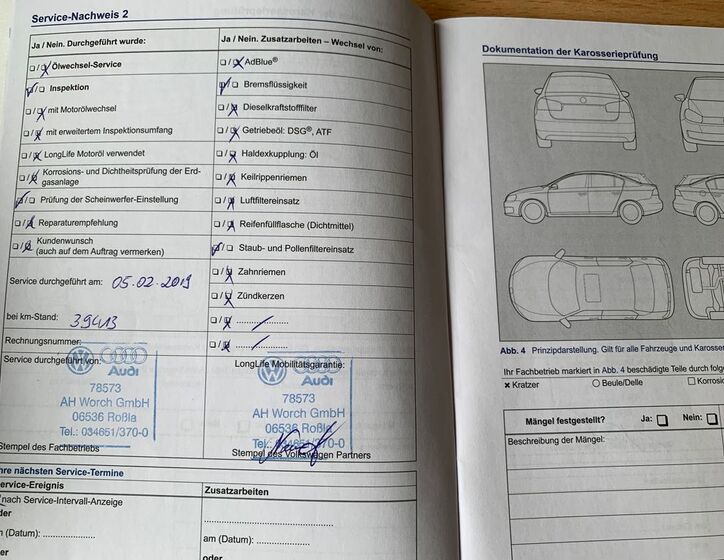 Service-Nachweis 2
Ja / Nein. Durchgeführt wurde:
Ölwechsel-Service
Inspektion
mit Motorölwechsel
mit erweitertem Inspektionsumfang
LongLife Motoröl verwendet
Korrosions- und Dichtheitsprüfung der Erd-
gasanlage
Prüfung der Scheinwerfer-Einstellung
Reparaturempfehlung
Kundenwunsch
(auch auf dem Auftrag vermerken)
Service durchgeführt am: 05.02.2019
bei km-Stand: 39413
Rechnungsnummer:
Service durchgeführt von:
Audi
78573
AH Worch GmbH
06536 Roßla
Tel.: 034651/370-0
Stempel des Fachbetriebs
Ja / Nein. Zusatzarbeiten – Wechsel von:
AdBlue®
Bremsflüssigkeit
Dieselkraftstofffilter
Getriebeöl: DSG®, ATF
Haldexkupplung: Öl
Keilrippenriemen
Luftfiltereinsatz
Reifenfüllflasche (Dichtmittel)
Staub- und Pollenfiltereinsatz
Zahnriemen
Zündkerzen
LongLife Mobilitätsgarantie:
Audi
78573
AH Worch GmbH
06536 Roßla
Tel.: 034651/370-0
Stempel des Volkswagen Partners
hre nächsten Service-Termine
ervice-Ereignis
nach Service-Intervall-Anzeige
der
m (Datum):
er
Zusatzarbeiten
am (Datum):
oder
Dokumentation der Karosserieprüfung
Abb. 4 Prinzipdarstellung. Gilt für alle Fahrzeuge und Karosser
Ihr Fachbetrieb markiert in Abb. 4 beschädigte Teile durch folge
Kratzer Beule/Delle Korrosi
Mängel festgestellt? Ja: Nein:
Beschreibung der Mängel: